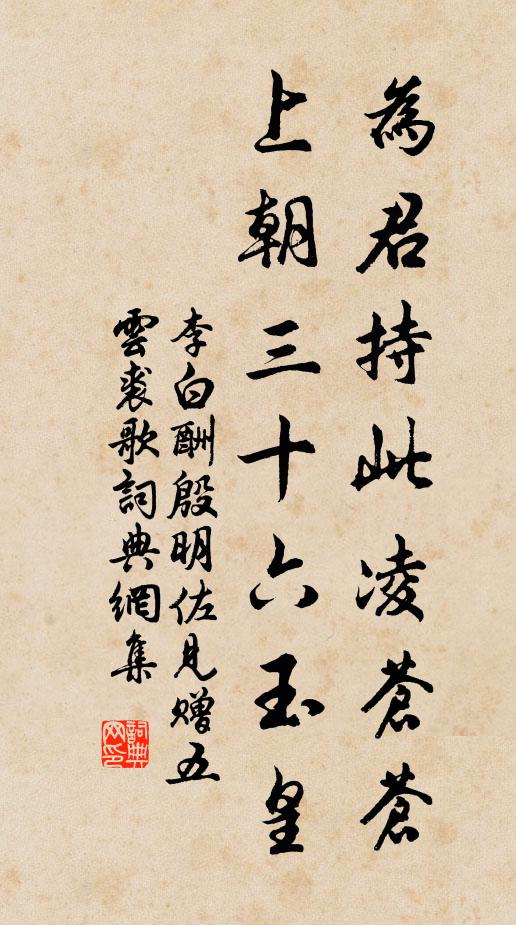 為君持此凌蒼蒼
上朝三十六玉皇
李白酬殷明佐見贈五
雲裘歌詞典網集
詞典
网印